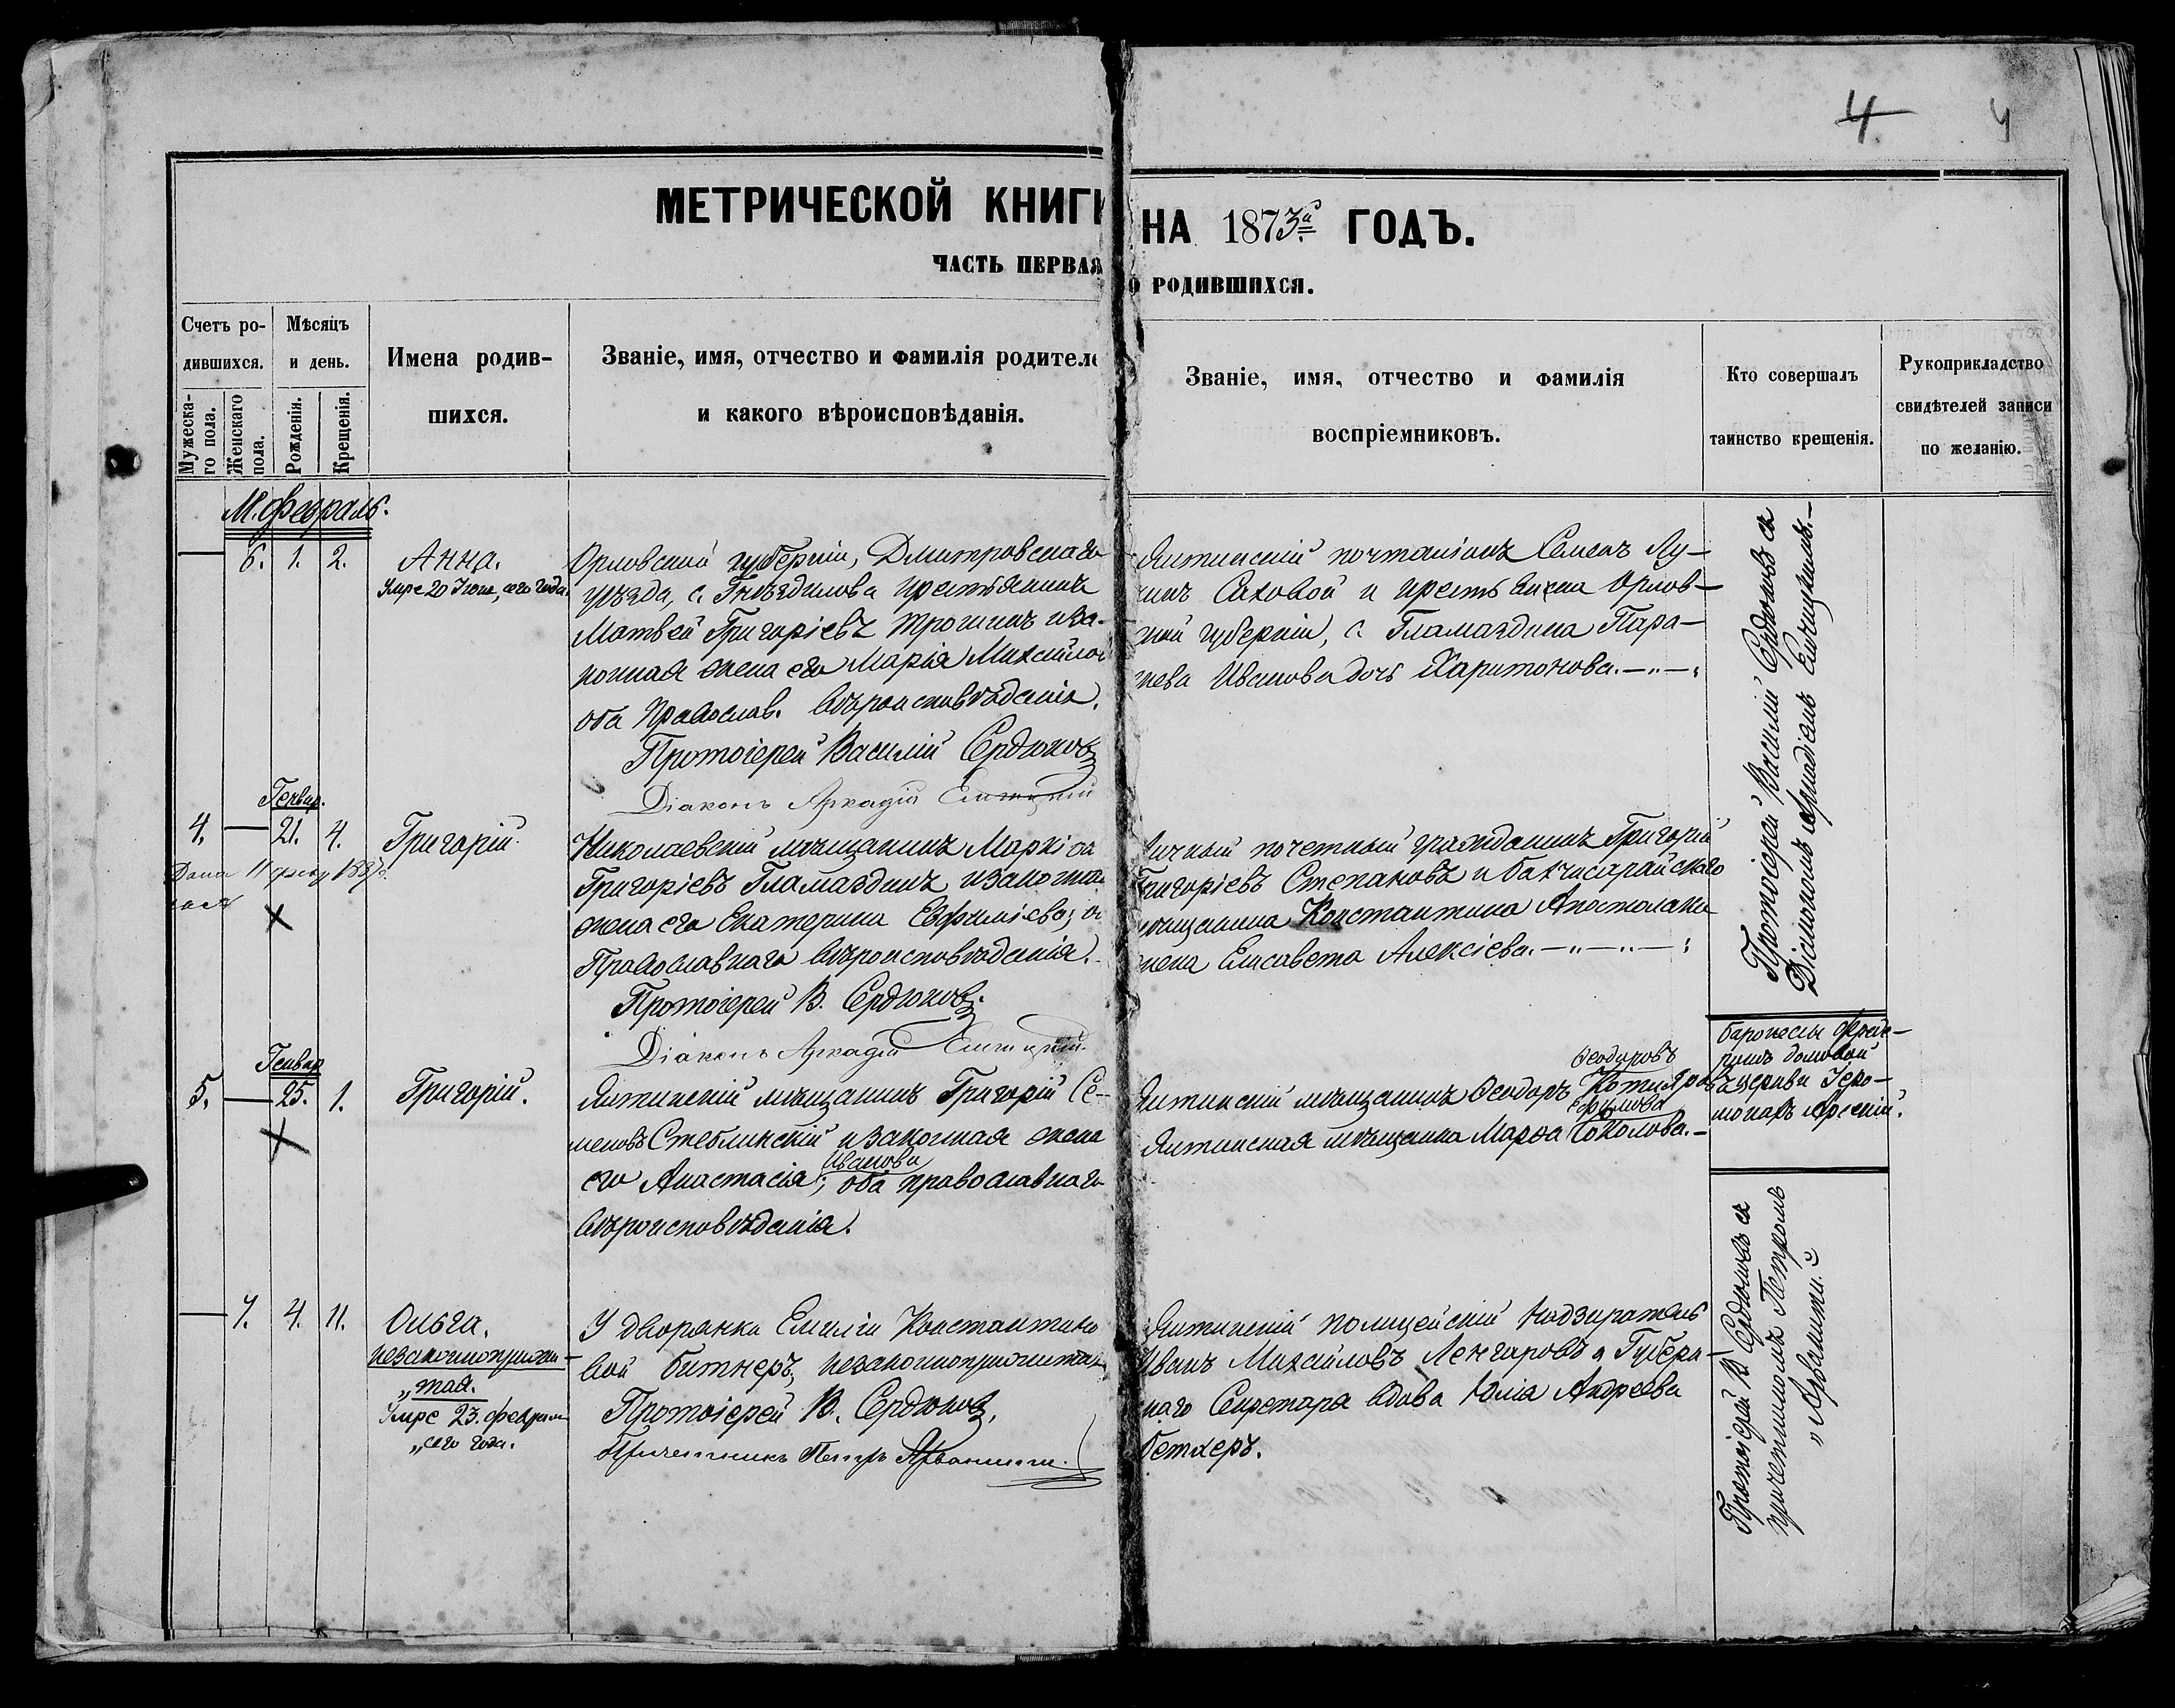 4 4
МЕТРИЧЕСКОЙ КНИГИ НА 1873й ГОДЪ.
ЧАСТЬ ПЕРВАЯ О РОДИВШИХСЯ.
Счетъ ро-
дившихся.
Мужеска-
го пола.
Женскаго
пола.
Мѣсяцъ
и день.
Рожденія.
Крещенія.
Имена родив-
шихся.
Званіе, имя, отчество и фамилія родителе
и какого вѣроисповѣданія.
Званіе, имя, отчество и фамилія
воспріемниковъ.
Кто совершалъ
таинство крещенія.
Рукоприкладство
свидѣтелей записи
по желанію.
М. Февраль.
— 6. 1. 2.
Анна.
Умре 20 Іюня, сего года.
Орловской губерніи, Дмитровскаго
уѣзда, с. Гнѣздилова крестьянинъ
Матвей Григоріевъ Трошинъ и за-
конная жена его Марія Михайлов
оба Православ. вѣроисповѣданія.
Протоіерей Василій Сердюковъ
Діаконъ Аркадій
Ялтинскій почталіонъ Семенъ Лу-
кинъ Саховой и крестьянска Орлов-
ской губерніи, с. Гламаздина Пара-
нева Иванова дочь Харитонова.
Протоіерей Василій Сердюковъ съ
Діакономъ Аркадіемъ
Генвар.
4. — 21. 4.
Дана 11 февр 188
Григорій.
Николаевскій мѣщанинъ Маркі
Григоріевъ Гламаздинъ и законна
жена его Екатерина Евфиміева, о
Православнаго вѣроисповѣданія.
Протоіерей В. Сердюковъ.
Діаконъ Аркадій
Личный почетный гражданинъ Григорій
Григоріевъ Степановъ и бахчисарайскаго
мѣщанина Константина Апостолаки
жена Елисавета Алексіева.
Генвар
5. — 25. 1.
Григорій.
Ялтинскій мѣщанинъ Григорій Се-
меновъ Стеблинскій и законная жена
его Анастасія Иванова; оба православнаго
вѣроисповѣданія.
Ялтинскій мѣщанинъ Ѳеодоръ Ѳеодоровъ Котляровъ
Ялтинская мѣщанка Марѳа Ефимова Соколова.
баронессы
домовой
церкви Іеро-
монахъ Арсеній.
— 7. 4. 11.
Ольга.
незаконноприжи-
тая.
Умре 23. февраля
сего года.
У дворянки Емиліи Константино
вой Битнеръ, незаконноприжитая
Протоіерей В. Сердюковъ.
Причетникъ Петръ Арванити.
Ялтинскій полицейскій Надзиратель
Иванъ Михайловъ Ленгаровъ и Губерн-
скаго Секретаря вдова Юлія Андреева
Бетхеръ.
Протоіерей В. Сердюковъ съ
причетникомъ Петромъ
Арванити.